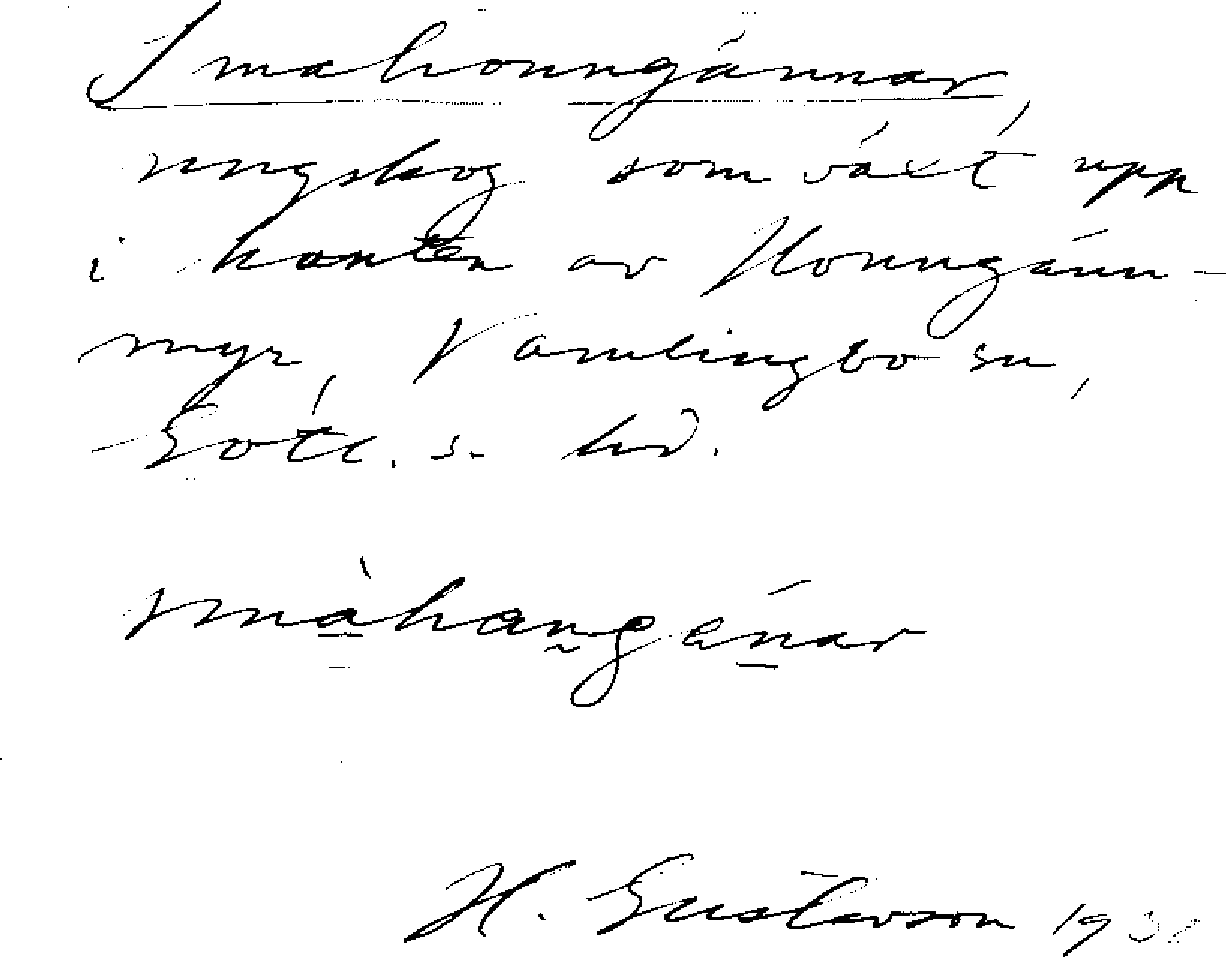 Småhonngännar,
ungskog som växt upp
i kanten av Honngänn-
myr, Vamlingbo sn,
Gotl. s. hd.
smàhangänar
H. Gustavson